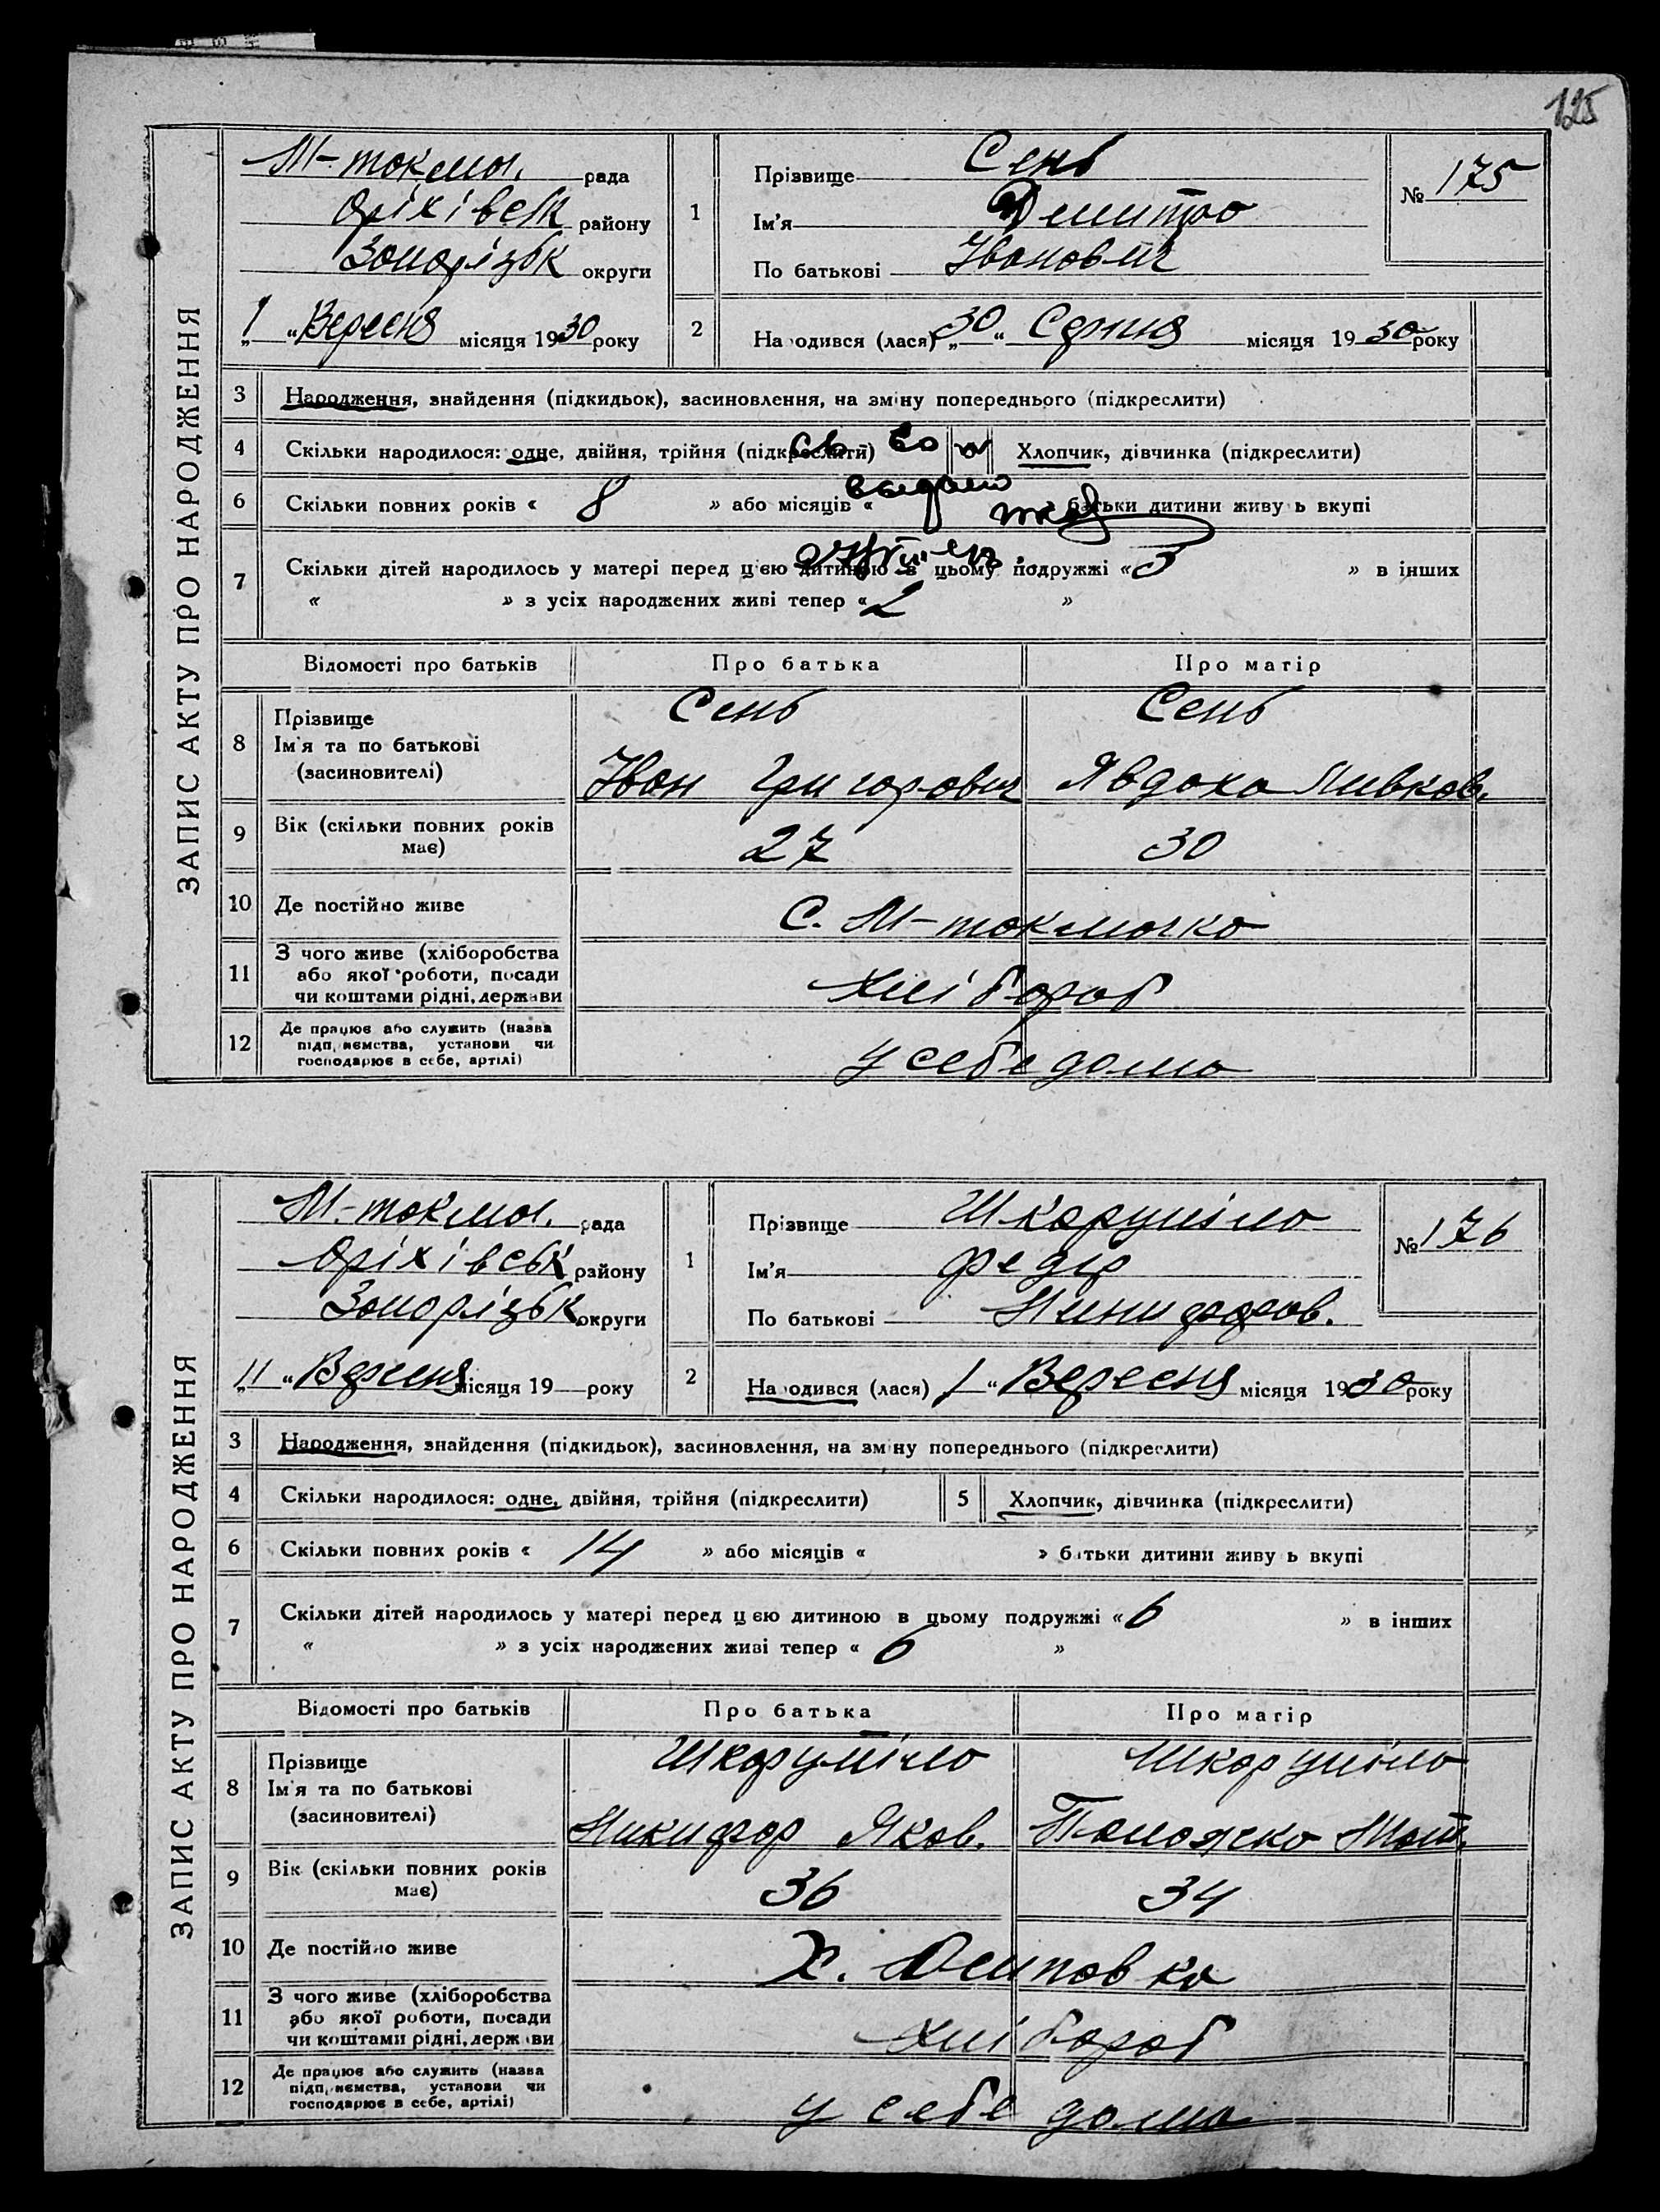 125
ЗАПИС АКТУ ПРО НАРОДЖЕННЯ
М-токмач. рада
Оріхівськ району
Запорізьк округи
„1“ Вересня місяця 1930 року
1
Прізвище Сень
Ім'я Дмитро
По батькові Іванович
№ 175
2
Народився (лася) „30“ Серпня місяця 1930 року
3 Народження, знайдення (підкидьок), засиновлення, на зміну попереднього (підкреслити)
4 Скільки народилося: одне, двійня, трійня (підкреслити)
Хлопчик, дівчинка (підкреслити)
Св во
6 Скільки повних років « 8 » або місяців « батьки дитини живуть вкупі
выдано
7 Скільки дітей народилось у матері перед цією дитиною в цьому подружжі « 3 » в інших
« » з усіх народжених живі тепер « 2 »
Відомості про батьків Про батька Про матір
8 Прізвище
Ім'я та по батькові
(засиновителі)
Сень Сень
Іван Григорович Явдоха
9 Вік (скільки повних років має) 27 30
10 Де постійно живе С. М-токмачка
11 З чого живе (хліборобства або якої роботи, посади чи коштами рідні, держави Хлібороб
12 Де працює або служить (назва підприємства, установи чи господарює в себе, артілі) у себе дома
ЗАПИС АКТУ ПРО НАРОДЖЕННЯ
М-токмач. рада
Оріхівськ району
Запорізьк округи
„11“ Вересня місяця 19 року
1
Прізвище Шкорупіло
Ім'я Федір
По батькові Никифоров.
№ 176
2
Народився (лася) „1“ Вересня місяця 1930 року
3 Народження, знайдення (підкидьок), засиновлення, на зміну попереднього (підкреслити)
4 Скільки народилося: одне, двійня, трійня (підкреслити)
5 Хлопчик, дівчинка (підкреслити)
6 Скільки повних років « 14 » або місяців « » батьки дитини живуть вкупі
7 Скільки дітей народилось у матері перед цією дитиною в цьому подружжі « 6 » в інших
« » з усіх народжених живі тепер « 6 »
Відомості про батьків Про батька Про матір
8 Прізвище
Ім'я та по батькові
(засиновителі)
Шкорупіло Шкорупіло
Никифор Яков. Палажка
9 Вік (скільки повних років має) 36 34
10 Де постійно живе Х. Осиповка
11 З чого живе (хліборобства або якої роботи, посади чи коштами рідні, держави Хлібороб
12 Де працює або служить (назва підприємства, установи чи господарює в себе, артілі) у себе дома